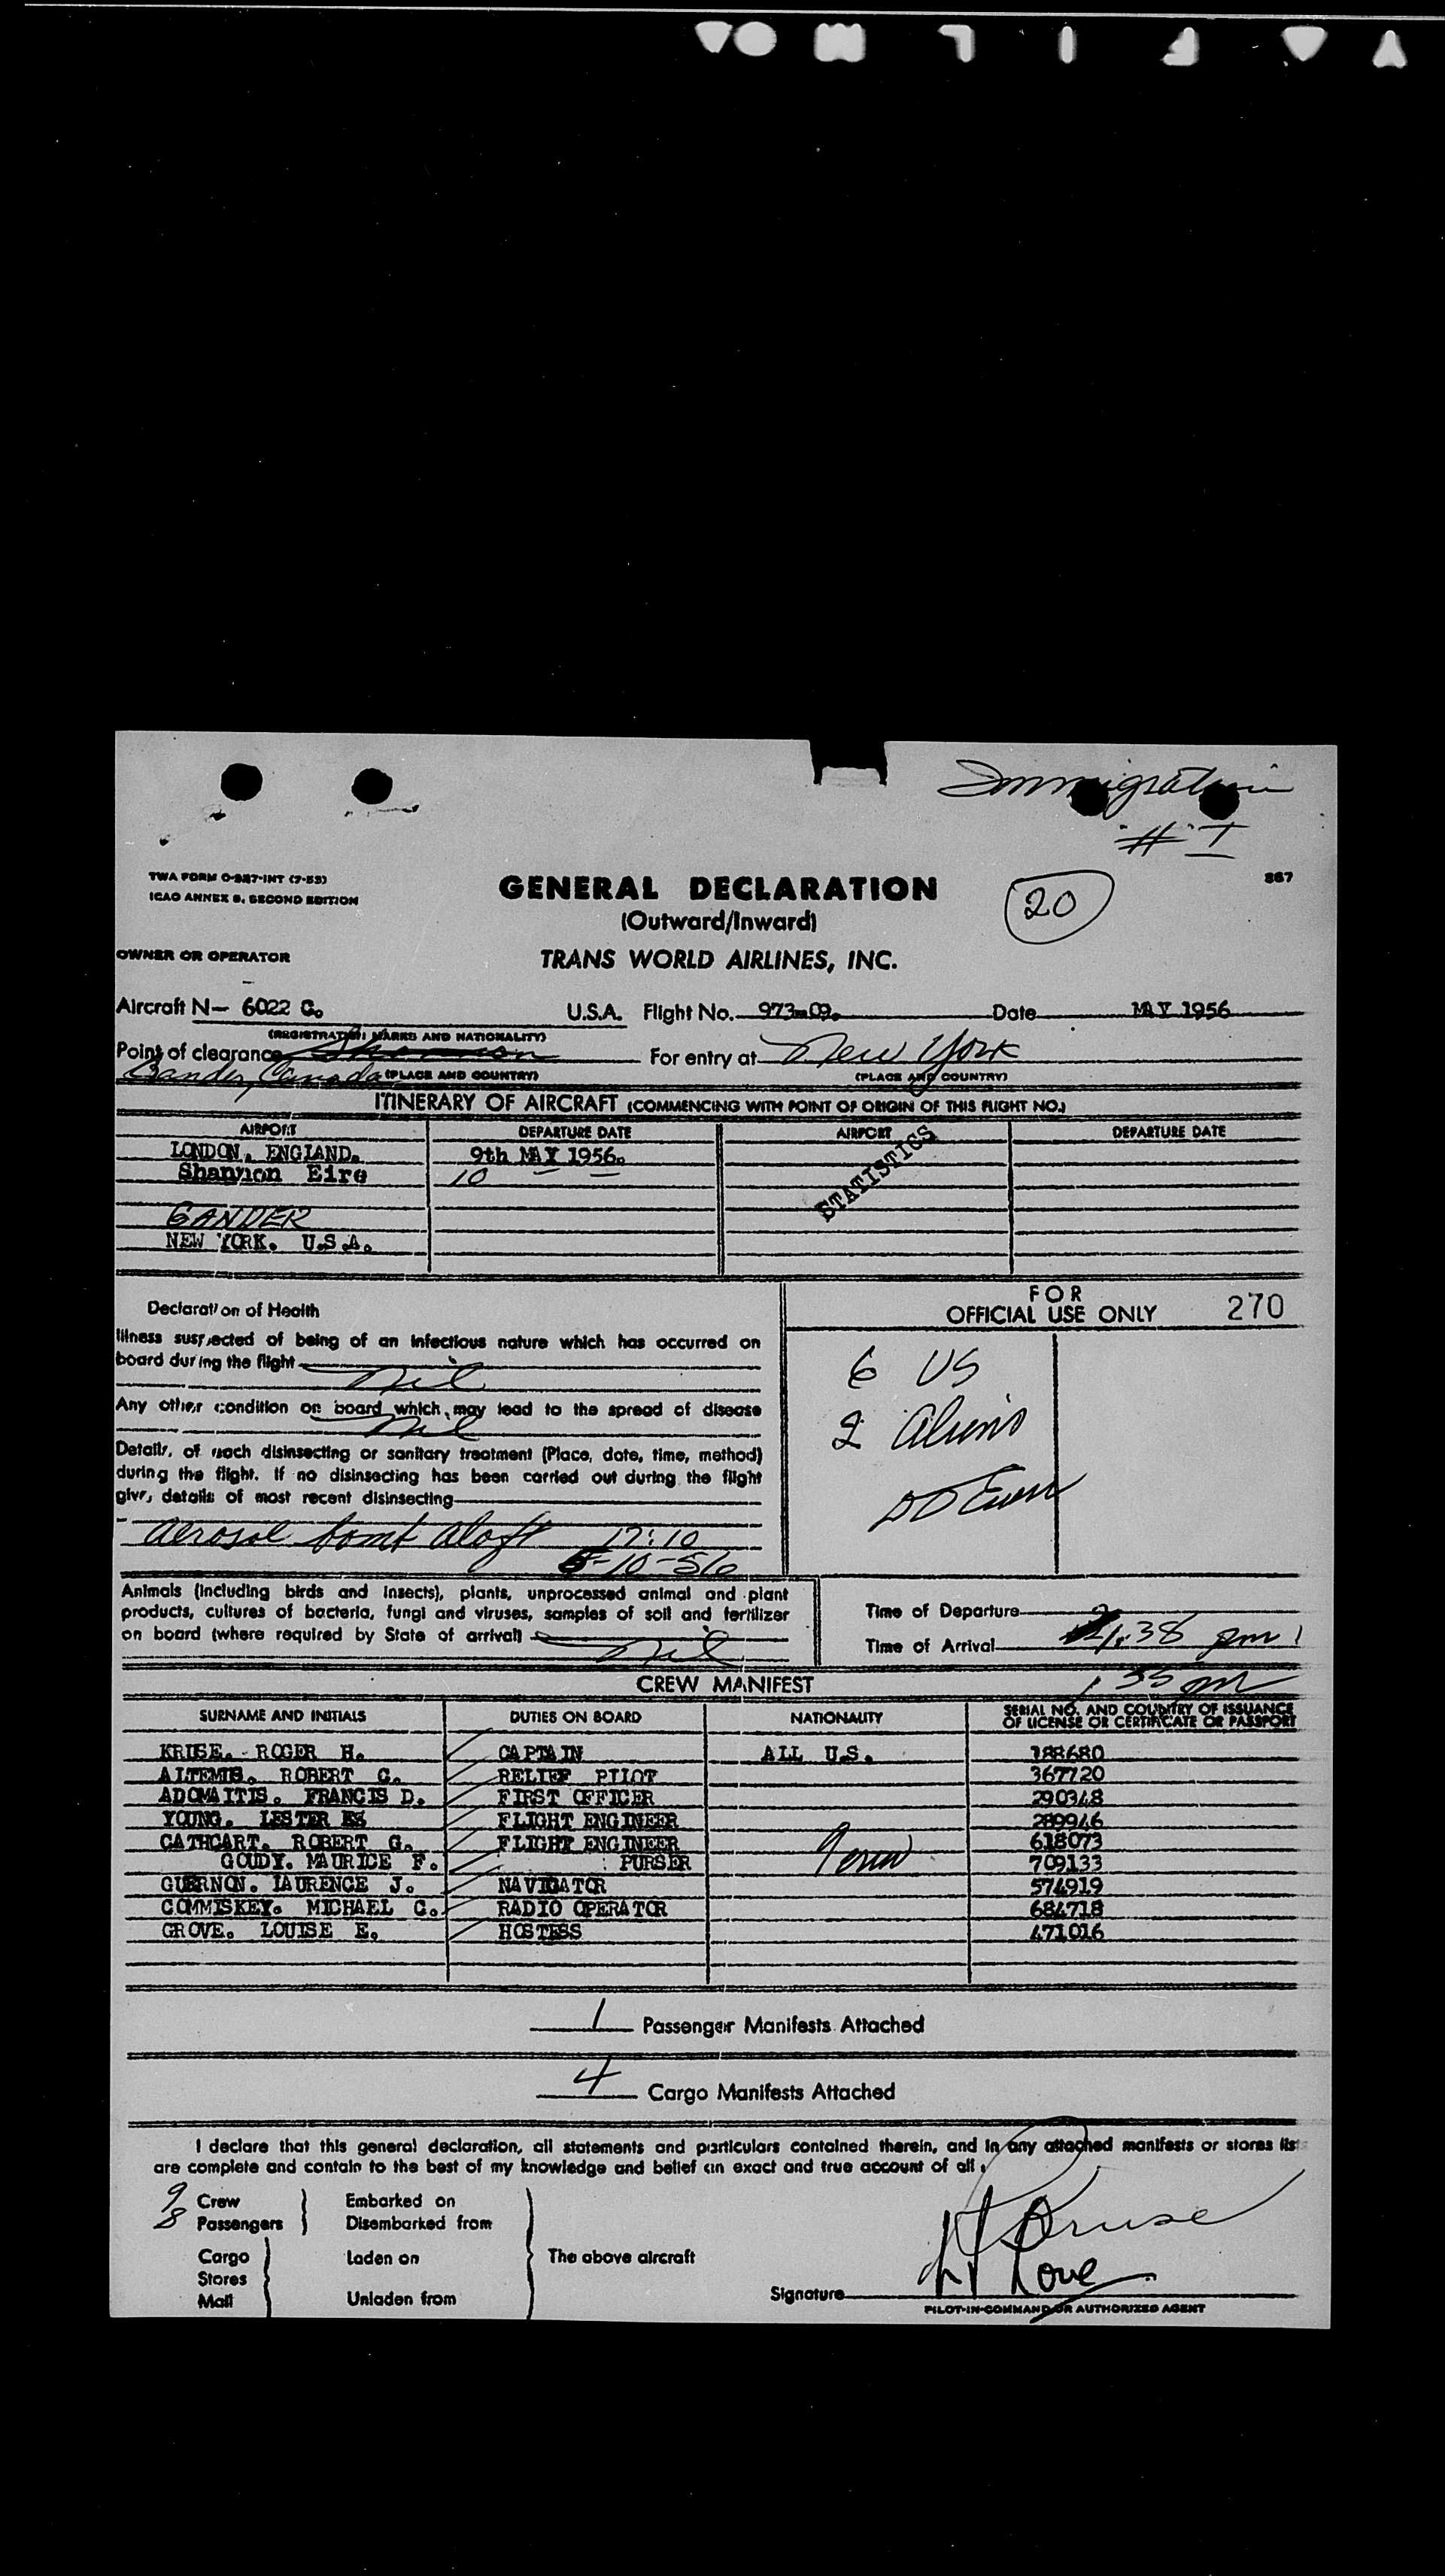 Immigration
# 1
TWA FORM O-287-INT (7-53)
ICAO ANNEX 9, SECOND EDITION
GENERAL DECLARATION
(Outward/Inward)
20
867
OWNER OR OPERATOR
TRANS WORLD AIRLINES, INC.
Aircraft N- 6022 C. U.S.A. Flight No. 973-09. Date MAY 1956
(REGISTRATION MARKS AND NATIONALITY)
Point of clearance Shannon For entry at New York
Gander, Canada (PLACE AND COUNTRY) (PLACE AND COUNTRY)
ITINERARY OF AIRCRAFT (COMMENCING WITH POINT OF ORIGIN OF THIS FLIGHT NO.)
AIRPORT DEPARTURE DATE AIRPORT DEPARTURE DATE
LONDON. ENGLAND. 9th MAY 1956.
Shannon Eire 10
STATISTICS
GANDER
NEW YORK. U.S.A.
Declaration of Health
Illness suspected of being of an infectious nature which has occurred on
board during the flight
Nil
Any other condition on board which may lead to the spread of disease
Nil
Details of each disinsecting or sanitary treatment (Place, date, time, method)
during the flight. If no disinsecting has been carried out during the flight
give details of most recent disinsecting
Aerosol bomb aloft 17:10
5-10-56
FOR
OFFICIAL USE ONLY 270
6 US
2 Aliens
Animals (including birds and insects), plants, unprocessed animal and plant
products, cultures of bacteria, fungi and viruses, samples of soil and fertilizer
on board (where required by State of arrival)
Nil
Time of Departure
Time of Arrival 1:38 pm
1 35 pm
CREW MANIFEST
SURNAME AND INITIALS DUTIES ON BOARD NATIONALITY SERIAL NO. AND COUNTRY OF ISSUANCE
OF LICENSE OR CERTIFICATE OR PASSPORT
KRUSE. ROGER H. CAPTAIN ALL U.S. 188680
ALTEMUS. ROBERT G. RELIEF PILOT 367720
ADOMAITIS. FRANCIS D. FIRST OFFICER 290348
YOUNG. LESTER FLIGHT ENGINEER 289946
CATHCART. ROBERT G. FLIGHT ENGINEER 618073
GOUDY. MAURICE F. PURSER 709133
GUERNON. LAURENCE J. NAVIGATOR 574919
COMMISKEY. MICHAEL C. RADIO OPERATOR 684718
GROVE. LOUISE E. HOSTESS 471016
1 Passenger Manifests Attached
4 Cargo Manifests Attached
I declare that this general declaration, all statements and particulars contained therein, and in any attached manifests or stores list
are complete and contain to the best of my knowledge and belief an exact and true account of all:
9 Crew
8 Passengers
Embarked on
Disembarked from
Cargo
Stores
Mail
Laden on
Unladen from
The above aircraft
Kruse
Signature
PILOT-IN-COMMAND OR AUTHORIZED AGENT